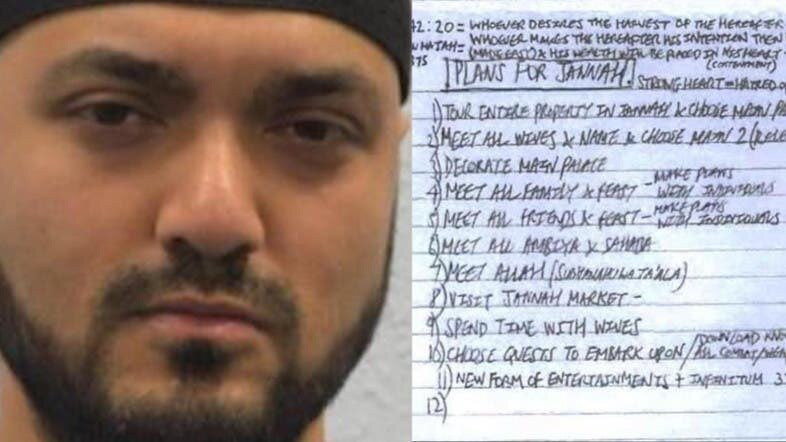 42:20 = WHOEVER DESIRES THE HARVEST OF THE HEREAFTER
WHOEVER MAKES THE HEREAFTER HIS INTENTION THEN
(MADE EASY) & HIS WEALTH WILL BE PLACED IN HIS HEART -
(CONTENTMENT)
PLANS FOR JANNAH.
STRONG HEART = HATRED OF
1) TOUR ENTIRE PROPERTY IN JANNAH & CHOOSE MAIN
2) MEET ALL WIVES & NAME & CHOOSE MAIN 2
3) DECORATE MAIN PALACE
4) MEET ALL FAMILY & FEAST - MAKE PLANS WITH INDIVIDUALS
5) MEET ALL FRIENDS & FEAST - MAKE PLANS WITH INDIVIDUALS
6) MEET ALL ANBIYA & SAHABA
7) MEET ALLAH (SUBHANAHUWATA'ALA)
8) VISIT JANNAH MARKET -
9) SPEND TIME WITH WIVES
10) CHOOSE QUESTS TO EMBARK UPON / DOWNLOAD
11) NEW FORM OF ENTERTAINMENTS + INFINITUM
12)